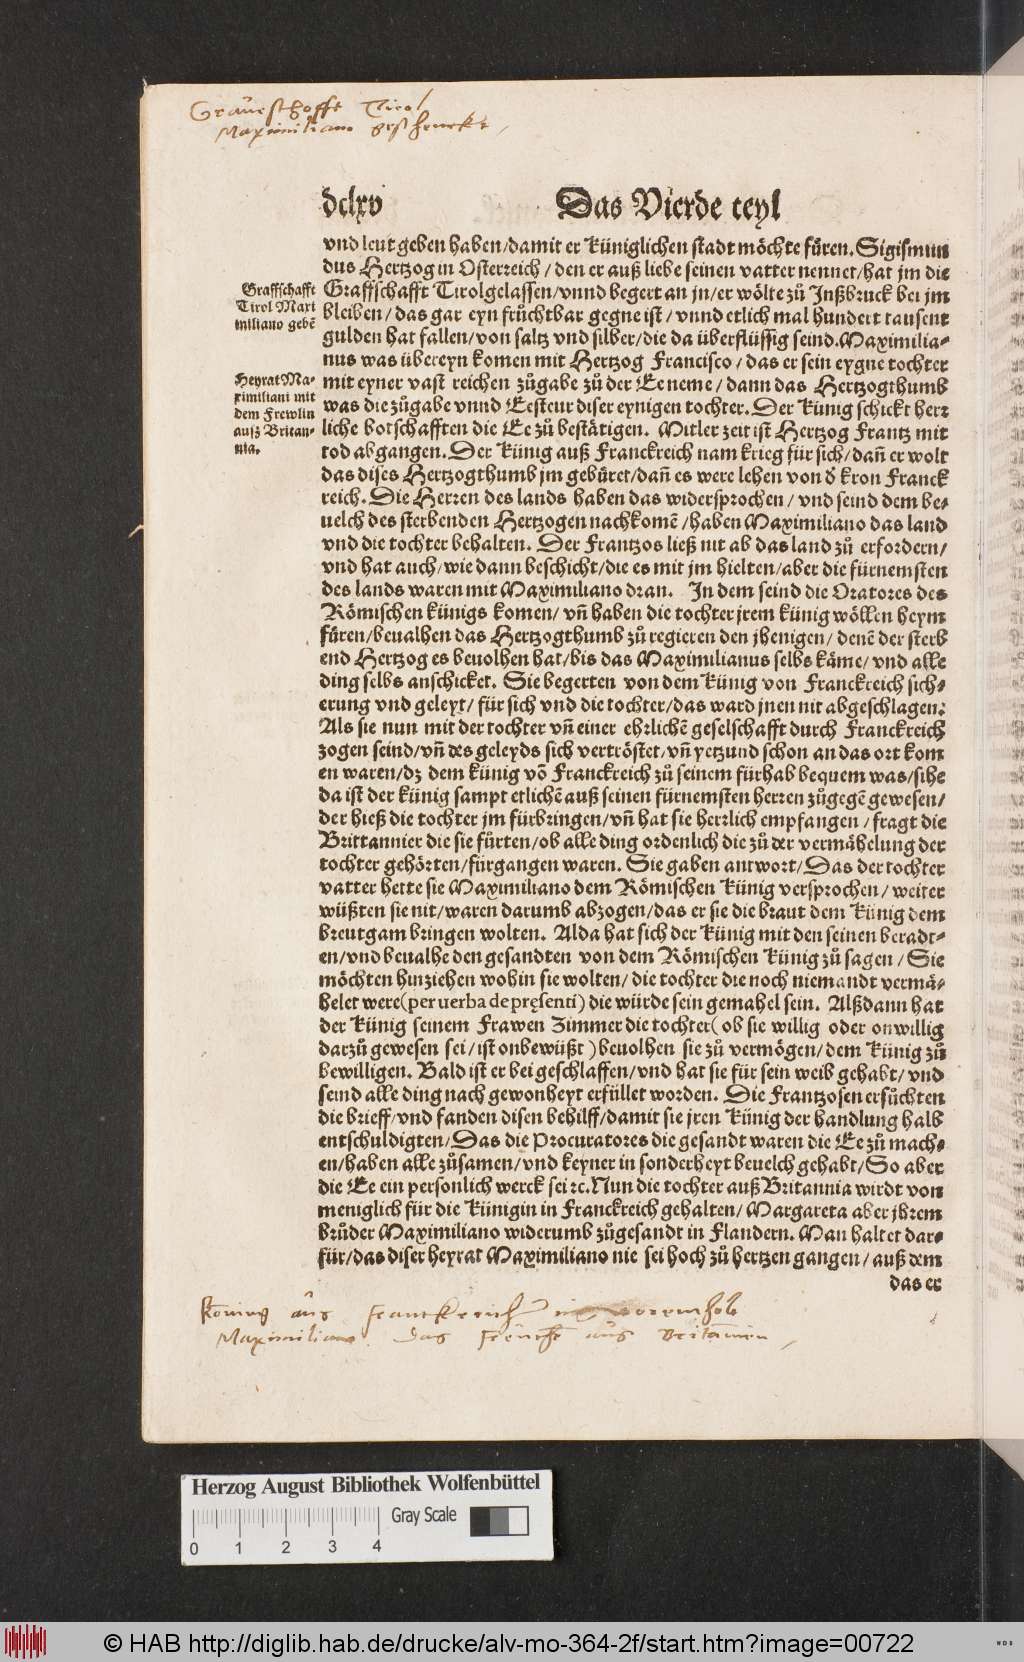 Graueschafft Tirol
Maximiliano geschenckt,
dclxv
Das Vierde teyl
vnd leut geben haben/damit er küniglichen stadt möchte füren. Sigismun
dus Hertzog in Osterreich/den er auß liebe seinen vatter nennet/hat jm die
Graffschafft Tirol gelassen/vnnd begert an jn/er wölte zů Inßbruck bei jm
bleiben/das gar eyn frůchtbar gegne ist/vnnd etlich mal hundert tausent
gulden hat fallen/von saltz vnd silber/die da überflüssig seind. Maximilia-
nus was übereyn komen mit Hertzog Francisco/das er sein eygne tochter
mit eyner vast reichen zůgabe zů der Ee neme/dann das Hertzogthumb
was die zůgabe vnnd Eesteur diser eynigen tochter. Der künig schickt herz
liche botschafften die Ee zů bestätigen. Mitler zeit ist Hertzog Frantz mit
tod abgangen. Der künig auß Franckreich nam krieg für sich/dañ er wolt
das dises Hertzogthumb jm gebüret/dañ es were lehen von d̕ kron Franck
reich. Die Herren des lands haben das widersprochen/vnd seind dem be-
uelch des sterbenden Hertzogen nachkomē/haben Maximiliano das land
vnd die tochter behalten. Der Frantzos ließ nit ab das land zů erfordern/
vnd hat auch/wie dann beschicht/die es mit jm hielten/aber die fürnemsten
des lands waren mit Maximiliano dran. In dem seind die Oratores des
Römischen künigs komen/vñ haben die tochter jrem künig wöllen heym
füren/beualhen das Hertzogthumb zů regieren den jhenigen/denē der sterb
end Hertzog es beuolhen hat/bis das Maximilianus selbs käme/vnd alle
ding selbs anschicket. Sie begerten von dem künig von Franckreich sich-
erung vnd geleyt/für sich vnd die tochter/das ward jnen nit abgeschlagen:
Als sie nun mit der tochter vñ einer ehrlichē geselschafft durch Franckreich
zogen seind/vñ des geleyds sich vertröstet/vñ yetzund schon an das ort kom
en waren/dz dem künig vō Franckreich zů seinem fürhab bequem was/sihe
da ist der künig sampt etlichē auß seinen fürnemsten herren zůgegē gewesen/
der hieß die tochter jm fürbringen/vñ hat sie herrlich empfangen/fragt die
Brittannier die sie fürten/ob alle ding ordenlich die zů der vermähelung der
tochter gehörten/fürgangen waren. Sie gaben antwort/Das der tochter
vatter hette sie Maximiliano dem Römischen künig versprochen/weiter
wüßten sie nit/waren darumb abzogen/das er sie die braut dem künig dem
breutgam bringen wolten. Alda hat sich der künig mit den seinen beradt-
en/vnd beualhe den gesandten von dem Römischen künig zů sagen/Sie
möchten hinziehen wohin sie wolten/die tochter die noch niemandt vermä-
helet were(per uerba de pręsenti) die würde sein gemahel sein. Alßdann hat
der künig seinem Frawen Zimmer die tochter(ob sie willig oder onwillig
darzů gewesen sei/ist onbewüßt)beuolhen sie zů vermögen/dem künig zů
bewilligen. Bald ist er bei geschlaffen/vnd hat sie für sein weib gehabt/vnd
seind alle ding nach gewonheyt erfüllet worden. Die Frantzosen ersůchten
die brieff/vnd fanden disen behilff/damit sie jren künig der handlung halb
entschuldigten/Das die Procuratores die gesandt waren die Ee zů mach-
en/haben alle zůsamen/vnd keyner in sonderheyt beuelch gehabt/So aber
die Ee ein personlich werck sei ꝛc. Nun die tochter auß Britannia wirdt von
meniglich für die künigin in Franckreich gehalten/Margareta aber jhrem
brůder Maximiliano widerumb zůgesandt in Flandern. Man haltet dar-
für/das diser heyrat Maximiliano nie sei hoch zů hertzen gangen/auß dem
das er
Graffschafft
Tirol Maxi
miliano gebē
Heyrat Ma-
ximiliani mit
dem Frewlin
auß Britan-
nia.
Koning aus Franckreich
Maximiliano das aus Britannien,
Herzog August Bibliothek Wolfenbüttel
Gray Scale
0 1 2 3 4
© HAB http://diglib.hab.de/drucke/alv-mo-364-2f/start.htm?image=00722